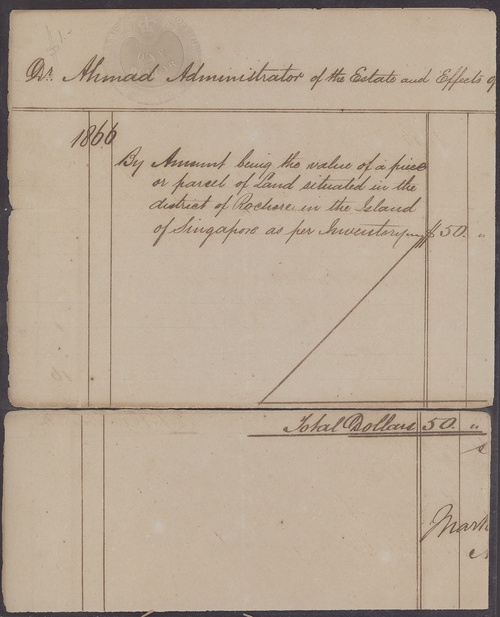 Dr. Ahmad Administrator of the Estate and Effects of
1866
By Amount being the value of a piece
or parcel of Land situated in the
district of Rochore in the Island
of Singapore as per Inventory $ 50. "
Total Dollars 50. "
Mark